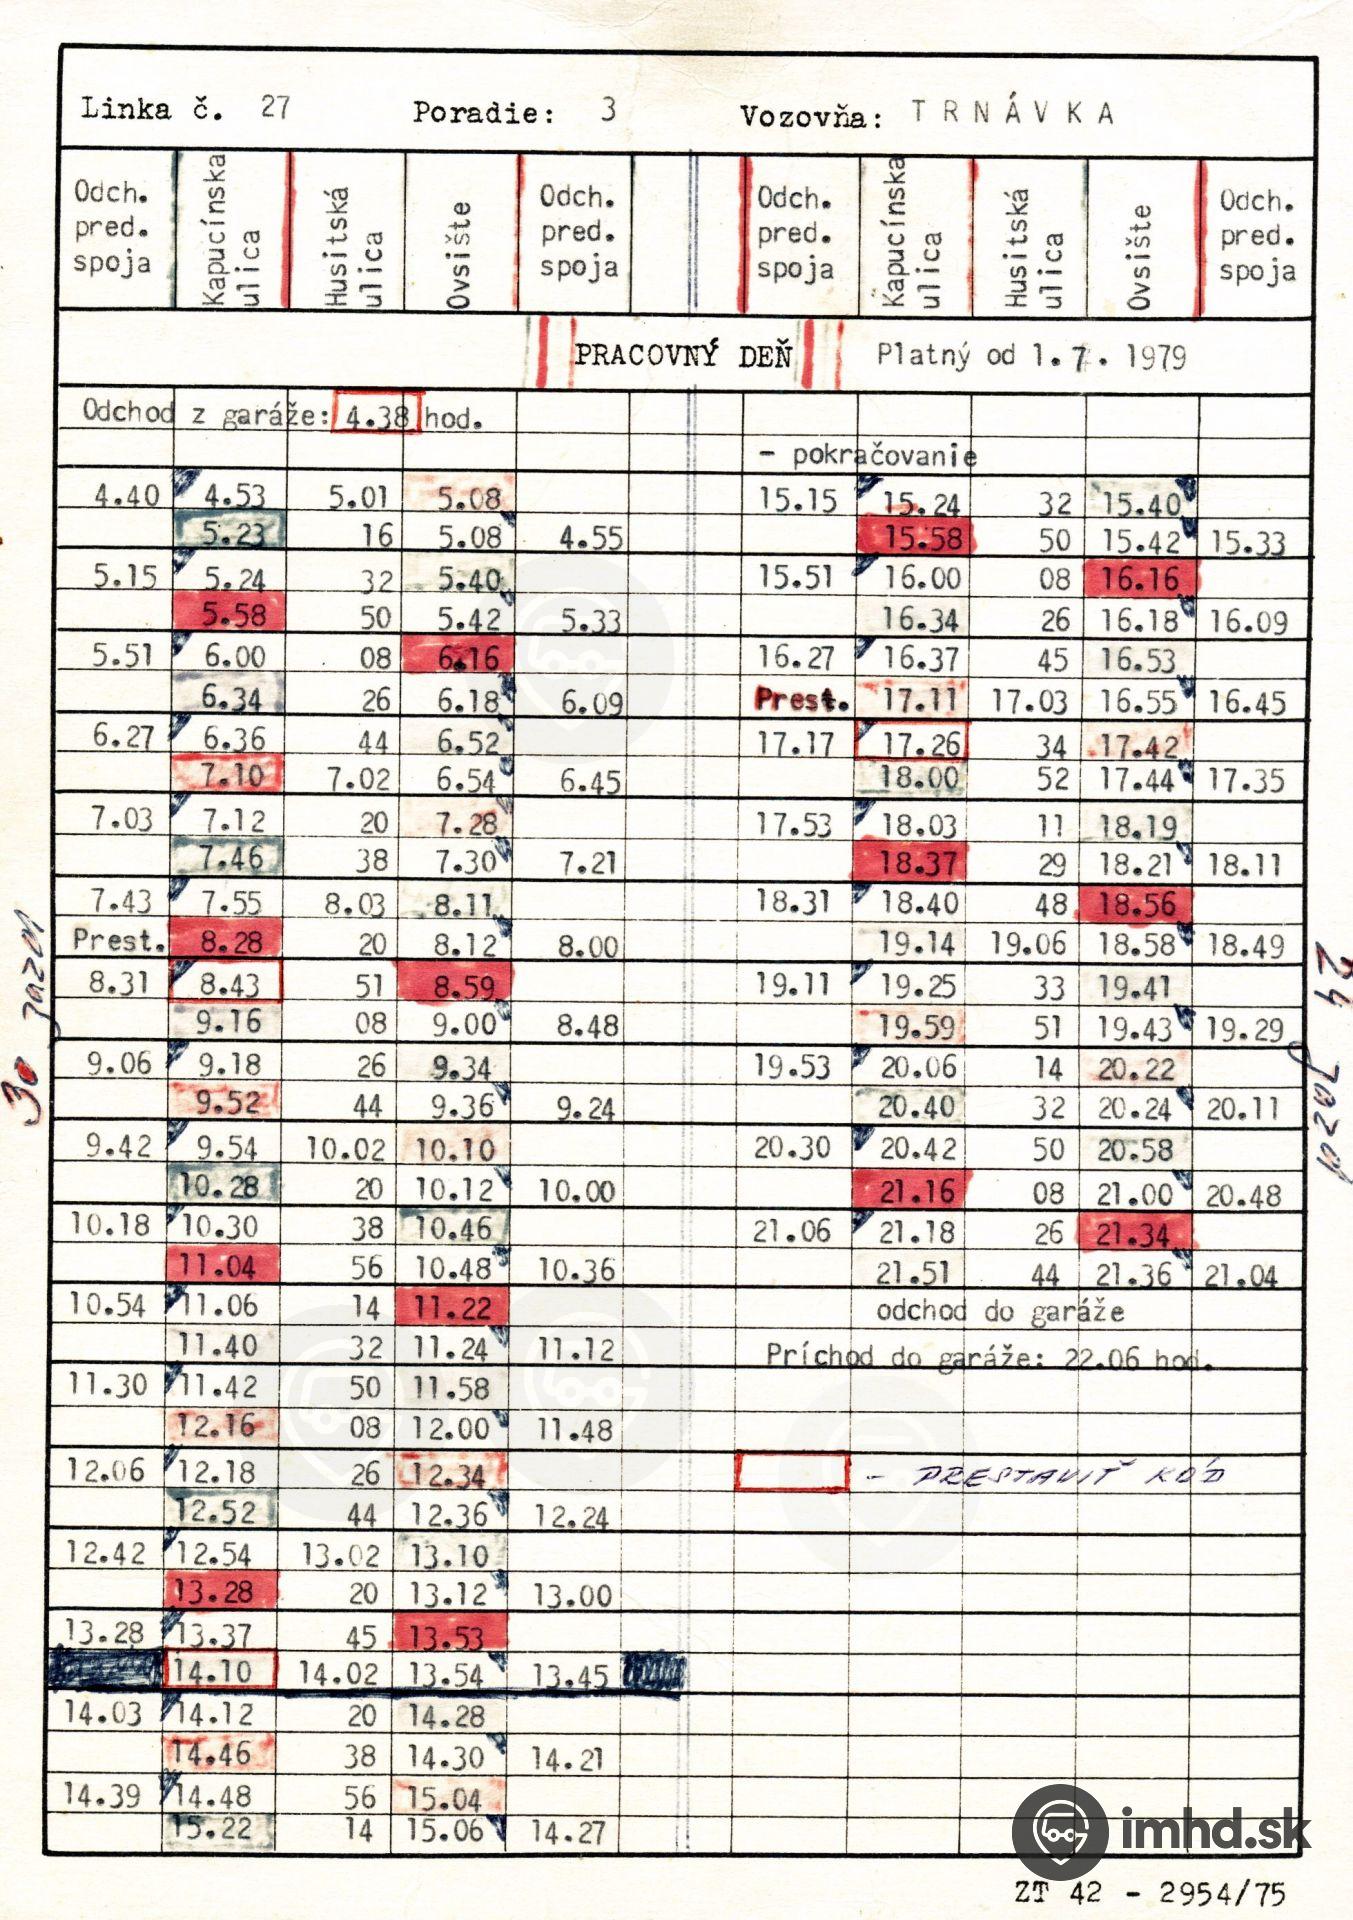 Linka č. 27 Poradie: 3 Vozovňa: TRNÁVKA
Odch. pred. spoja Kapucínska ulica Husitská ulica Ovsište Odch. pred. spoja Odch. pred. spoja Kapucínska ulica Husitská ulica Ovsište Odch. pred. spoja
PRACOVNÝ DEŇ Platný od 1.7. 1979
Odchod z garáže: 4.38 hod.
- pokračovanie
4.40 4.53 5.01 5.08 15.15 15.24 32 15.40
5.23 16 5.08 4.55 15.58 50 15.42 15.33
5.15 5.24 32 5.40 15.51 16.00 08 16.16
5.58 50 5.42 5.33 16.34 26 16.18 16.09
5.51 6.00 08 6.16 16.27 16.37 45 16.53
6.34 26 6.18 6.09 Prest. 17.11 17.03 16.55 16.45
6.27 6.36 44 6.52 17.17 17.26 34 17.42
7.10 7.02 6.54 6.45 18.00 52 17.44 17.35
7.03 7.12 20 7.28 17.53 18.03 11 18.19
7.46 38 7.30 7.21 18.37 29 18.21 18.11
7.43 7.55 8.03 8.11 18.31 18.40 48 18.56
Prest. 8.28 20 8.12 8.00 19.14 19.06 18.58 18.49
8.31 8.43 51 8.59 19.11 19.25 33 19.41
9.16 08 9.00 8.48 19.59 51 19.43 19.29
9.06 9.18 26 9.34 19.53 20.06 14 20.22
9.52 44 9.36 9.24 20.40 32 20.24 20.11
9.42 9.54 10.02 10.10 20.30 20.42 50 20.58
10.28 20 10.12 10.00 21.16 08 21.00 20.48
10.18 10.30 38 10.46 21.06 21.18 26 21.34
11.04 56 10.48 10.36 21.51 44 21.36 21.04
10.54 11.06 14 11.22 odchod do garáže
11.40 32 11.24 11.12 Príchod do garáže: 22.06 hod.
11.30 11.42 50 11.58
12.16 08 12.00 11.48
12.06 12.18 26 12.34 - PRESTAVIŤ KÓD
12.52 44 12.36 12.24
12.42 12.54 13.02 13.10
13.28 20 13.12 13.00
13.28 13.37 45 13.53
14.10 14.02 13.54 13.45
14.03 14.12 20 14.28
14.46 38 14.30 14.21
14.39 14.48 56 15.04
15.22 14 15.06 14.27
30 jazd
24 jazd
imhd.sk
ZT 42 - 2954/75